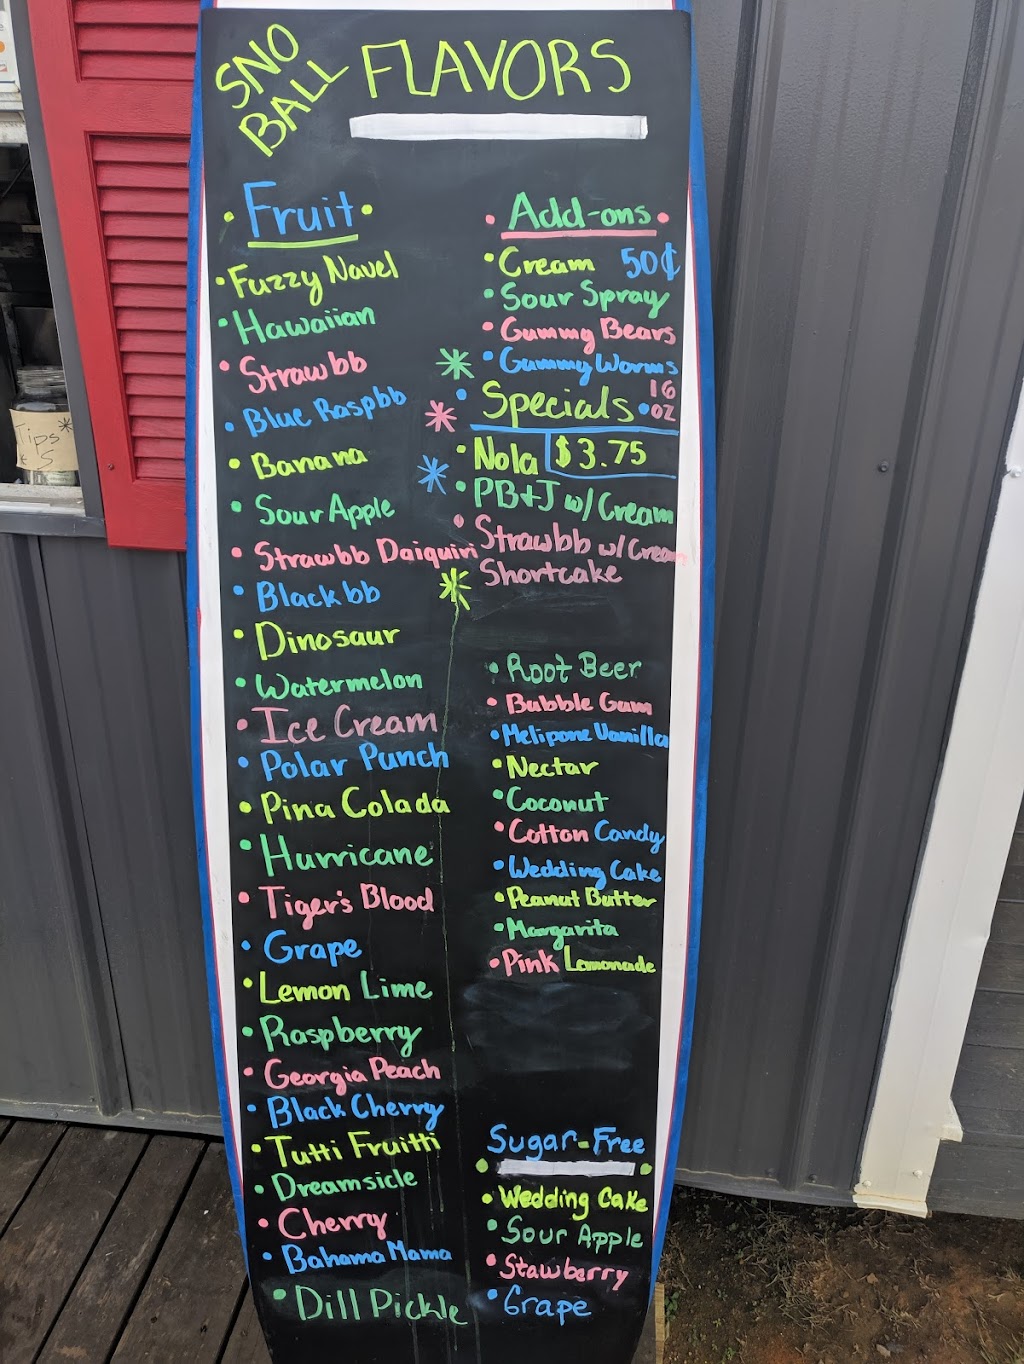 SNO
BALL
FLAVORS
Fruit
Fuzzy Navel
Hawaiian
Strawbb
Blue Raspbb
Banana
Sour Apple
Strawbb Daiquiri
Blackbb
Dinosaur
Watermelon
Ice Cream
Polar Punch
Pina Colada
Hurricane
Tiger's Blood
Grape
Lemon Lime
Raspberry
Georgia Peach
Black Cherry
Tutti Fruitti
Dreamsicle
Cherry
Bahama Mama
Dill Pickle
Add-ons
Cream 50¢
Sour Spray
Gummy Bears
Gummy Worms
Specials 16 oz
Nola $3.75
PB+J w/ Cream
Strawbb w/ Cream
Shortcake
Root Beer
Bubble Gum
Melipone Vanilla
Nectar
Coconut
Cotton Candy
Wedding Cake
Peanut Butter
Margarita
Pink Lemonade
Sugar-Free
Wedding Cake
Sour Apple
Stawberry
Grape
Tips